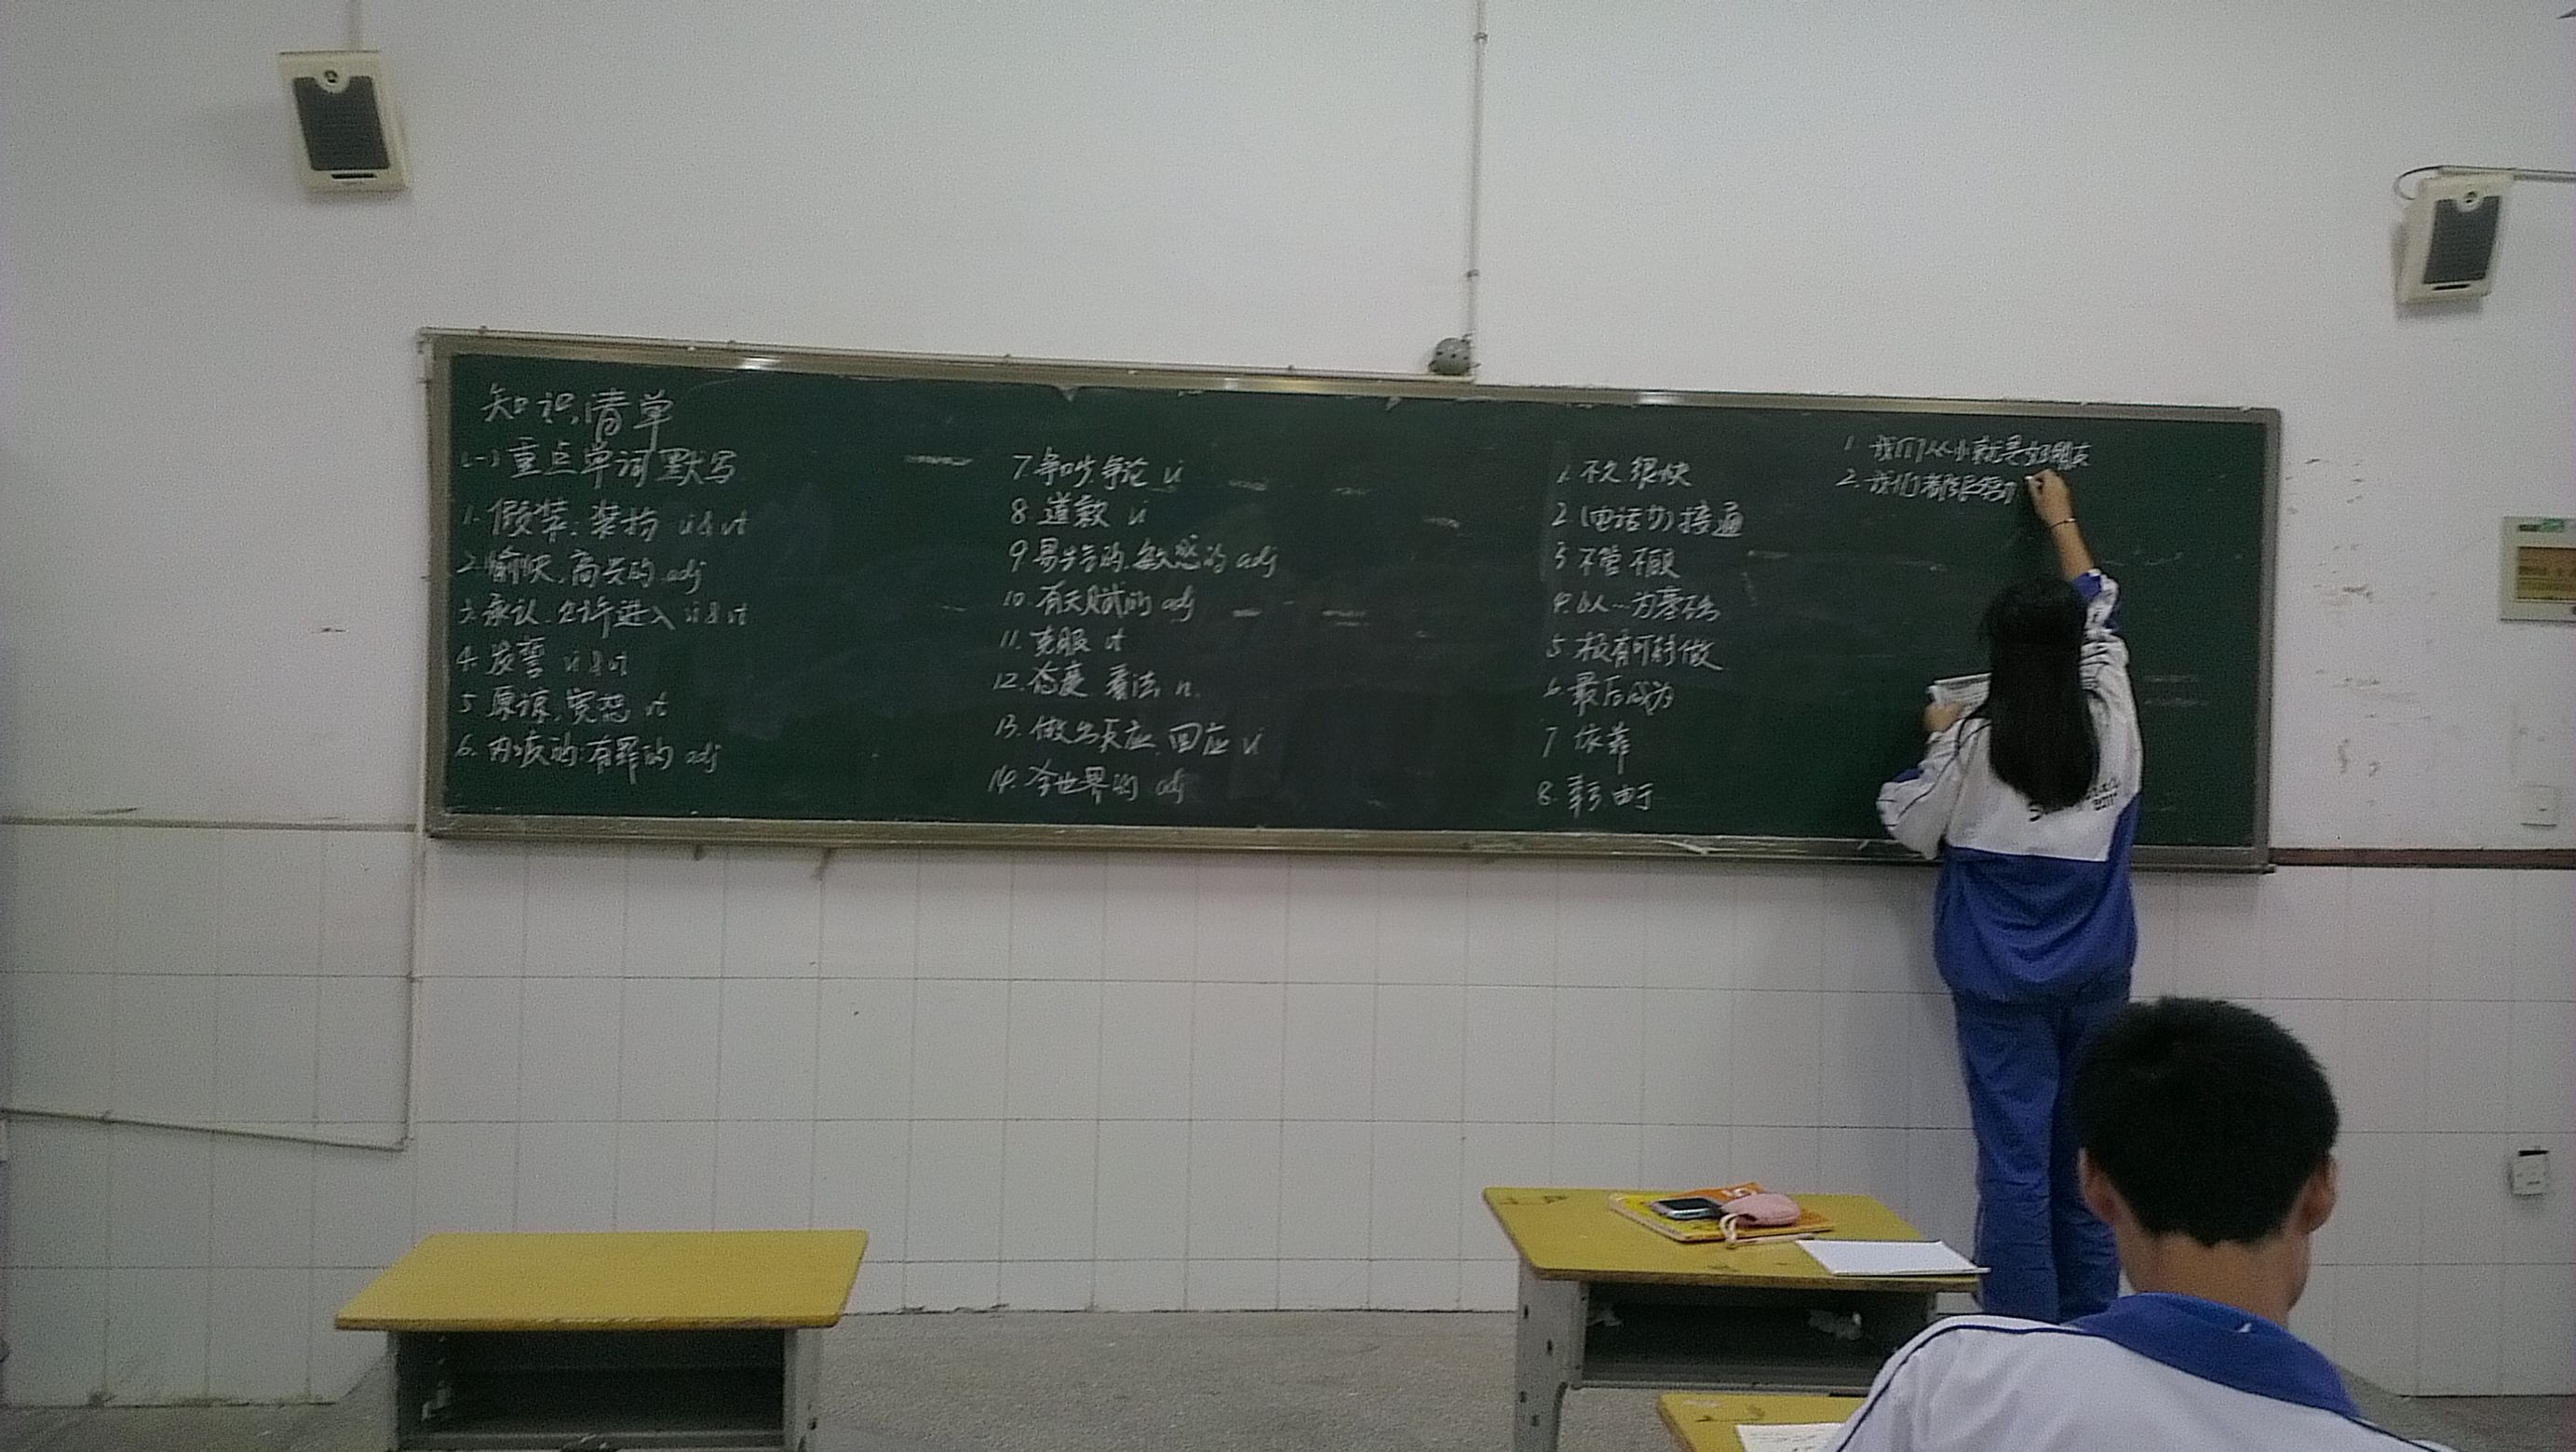 知识清单
(一)重点单词默写
1. 假装,装扮 vi & vt
2. 愉快,高兴的 adj
3. 承认,允许进入 vi & vt
4. 发誓 vi & vt
5 原谅,宽恕 vt
6. 内疚的,有罪的 adj
7. 争吵,争论 vi
8 道歉 vi
9 易受伤的,敏感的 adj
10. 有天赋的 adj
11. 克服 vt
12. 态度,看法 n.
13. 做出反应,回应 vi
14. 全世界的 adj
1. 不久 很快
2 (电话中)接通
3 不管 不顾
4. 以…为基础
5. 极有可能做
6 最后成为
7 依靠
8. 由于
1. 我们从小就是好朋友
2. 我们都很努力
2011